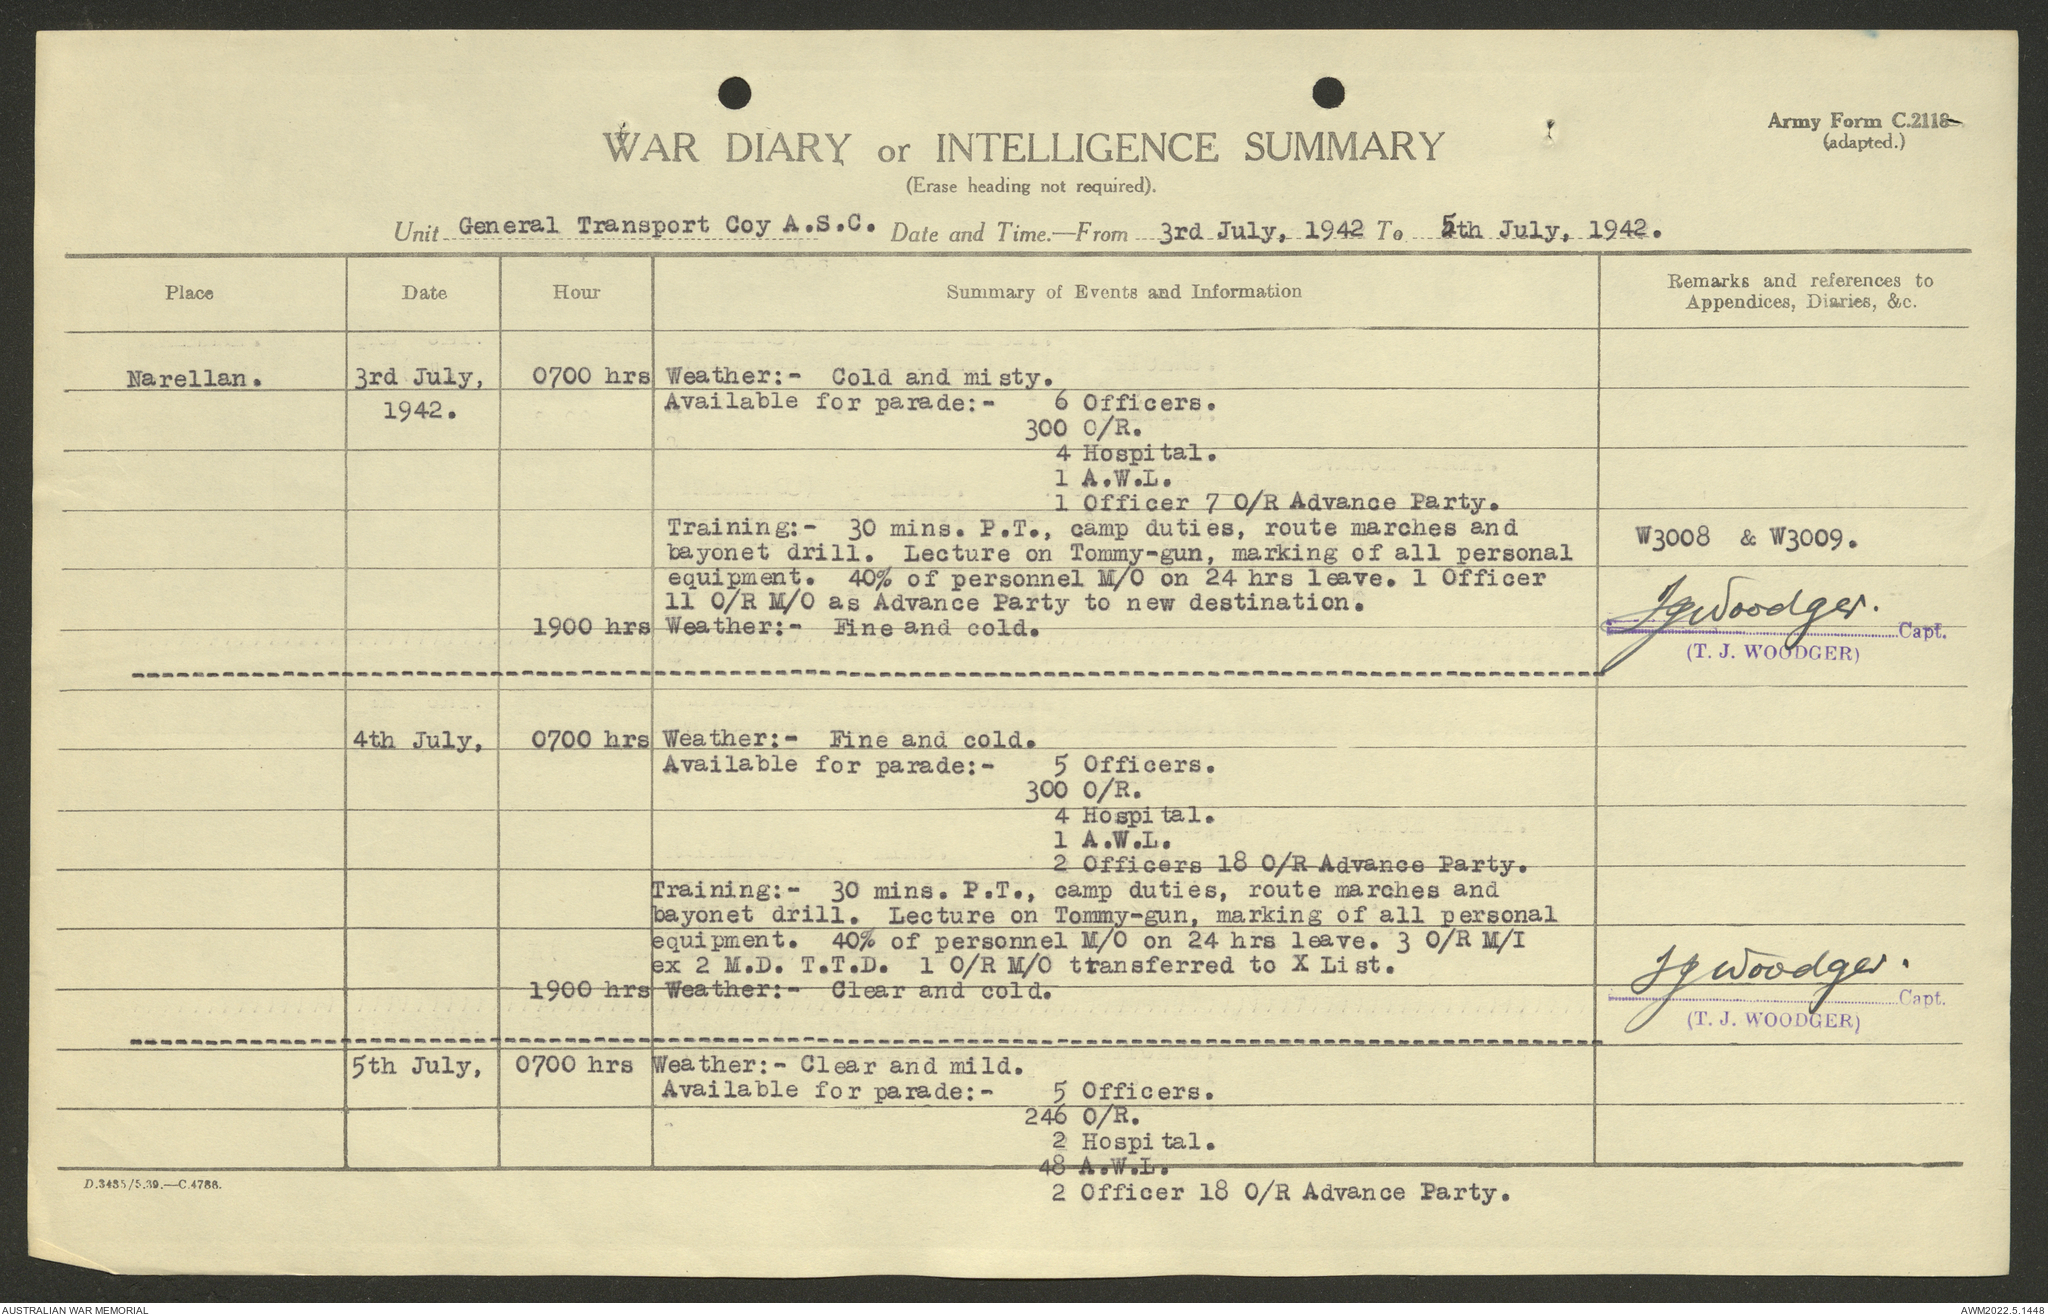 Army Form C.2118
(adapted.)
WAR DIARY or INTELLIGENCE SUMMARY
(Erase heading not required).
Unit General Transport Coy A.S.C. Date and Time.—From 3rd July, 1942 To 5th July, 1942.
Place Date Hour Summary of Events and Information Remarks and references to
Appendices, Diaries, &c.
Narellan. 3rd July, 0700 hrs Weather:- Cold and misty.
1942. Available for parade:- 6 Officers.
300 O/R.
4 Hospital.
1 A.W.L.
1 Officer 7 O/R Advance Party.
Training:- 30 mins. P.T., camp duties, route marches and
bayonet drill. Lecture on Tommy-gun, marking of all personal W3008 & W3009.
equipment. 40% of personnel M/O on 24 hrs leave. 1 Officer
11 O/R M/O as Advance Party to new destination. TJWoodger.
1900 hrs Weather:- Fine and cold. Capt.
(T. J. WOODGER)
4th July, 0700 hrs Weather:- Fine and cold.
Available for parade:- 5 Officers.
300 O/R.
4 Hospital.
1 A.W.L.
2 Officers 18 O/R Advance Party.
Training:- 30 mins. P.T., camp duties, route marches and
bayonet drill. Lecture on Tommy-gun, marking of all personal
equipment. 40% of personnel M/O on 24 hrs leave. 3 O/R M/I
ex 2 M.D. T.T.D. 1 O/R M/O transferred to X List. TJWoodger.
1900 hrs Weather:- Clear and cold. Capt.
(T. J. WOODGER)
5th July, 0700 hrs Weather:- Clear and mild.
Available for parade:- 5 Officers.
246 O/R.
2 Hospital.
48 A.W.L.
2 Officer 18 O/R Advance Party.
D.3435/5.39.—C.4786.
AUSTRALIAN WAR MEMORIAL AWM2022.5.1448